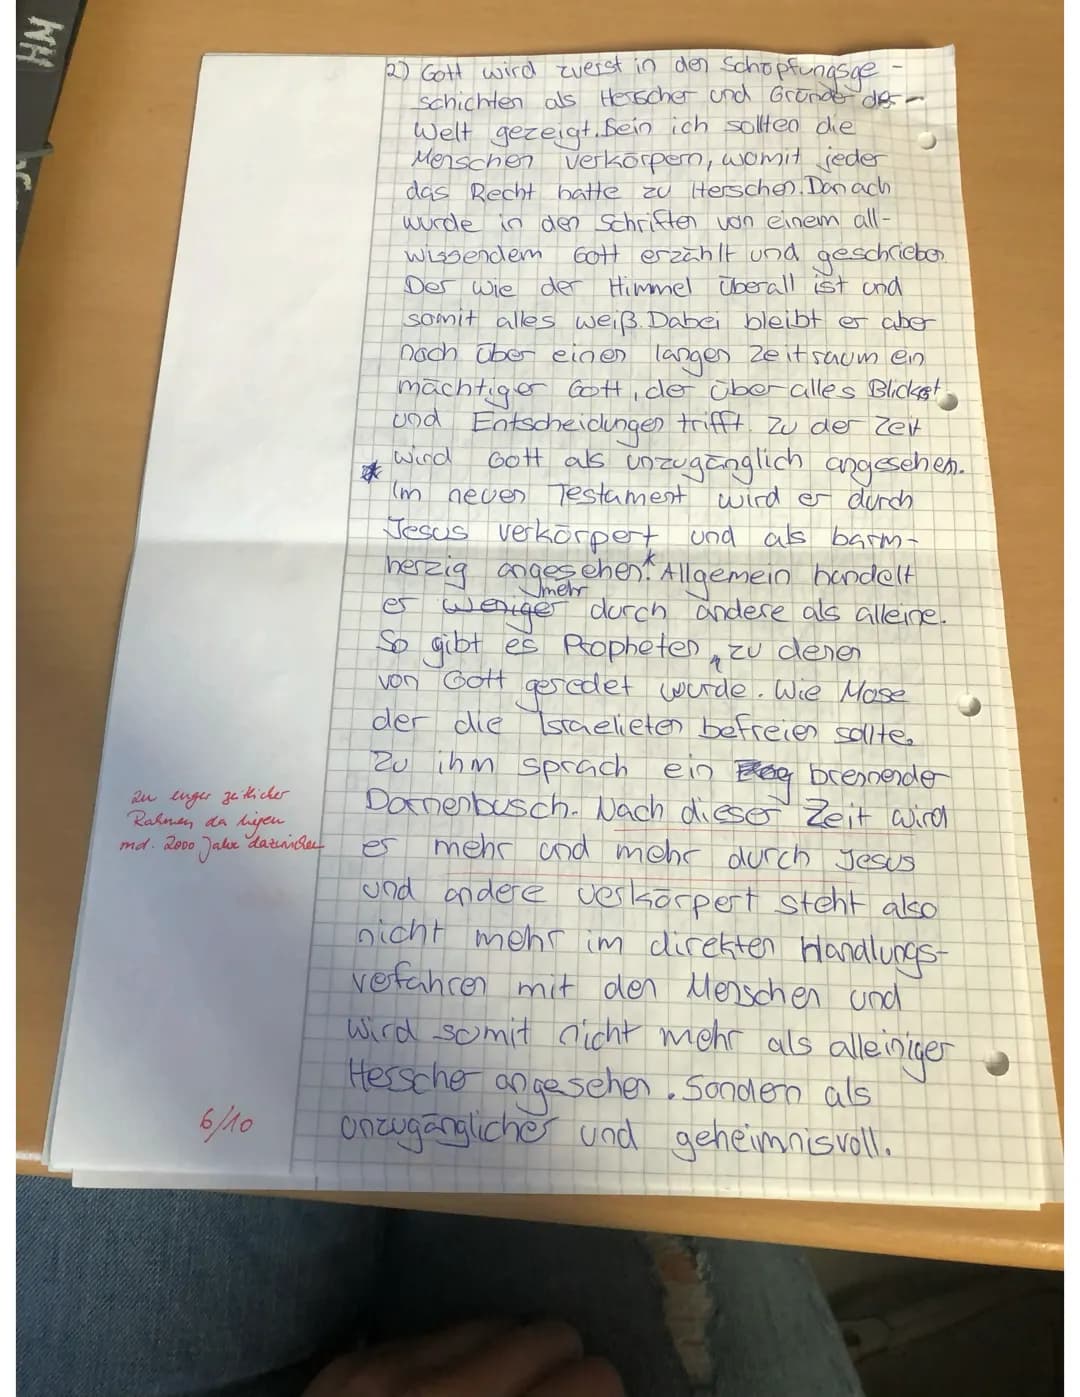 HH
2) Gott wird zuerst in den Schöpfungsge-
schichten als Herscher und Gründer der
Welt gezeigt. Sein ich sollten die
Menschen verkörpern, womit jeder
das Recht hatte zu Herschen. Danach
wurde in den Schriften von einem all-
wissendem Gott erzählt und geschrieben
Der wie der Himmel überall ist und
somit alles weiß. Dabei bleibt er aber
noch über einen langen Zeitraum ein
mächtiger Gott, der über alles Blickt
und Entscheidungen trifft. Zu der Zeit
wird Gott als unzugänglich angesehen.
* Im neuen Testament wird er durch
Jesus verkörpert und als barm-
herzig angesehen.* Allgemein handelt
mehr
er weniger durch andere als alleine.
So gibt es Propheten, zu denen
von Gott geredet wurde. Wie Mose
der die Israelieten befreien sollte.
Zu ihm sprach ein brennender
Dornenbusch. Nach dieser Zeit wird
er mehr und mehr durch Jesus
und andere verkörpert steht also
nicht mehr im direkten Handlungs-
verfahren mit den Menschen und
wird somit nicht mehr als alleiniger
Herscher angesehen. Sondern als
unzugänglicher und geheimnisvoll.
zu enger zeitlicher
Rahmen, da liegen
md. 2000 Jahre dazwischen
6/10